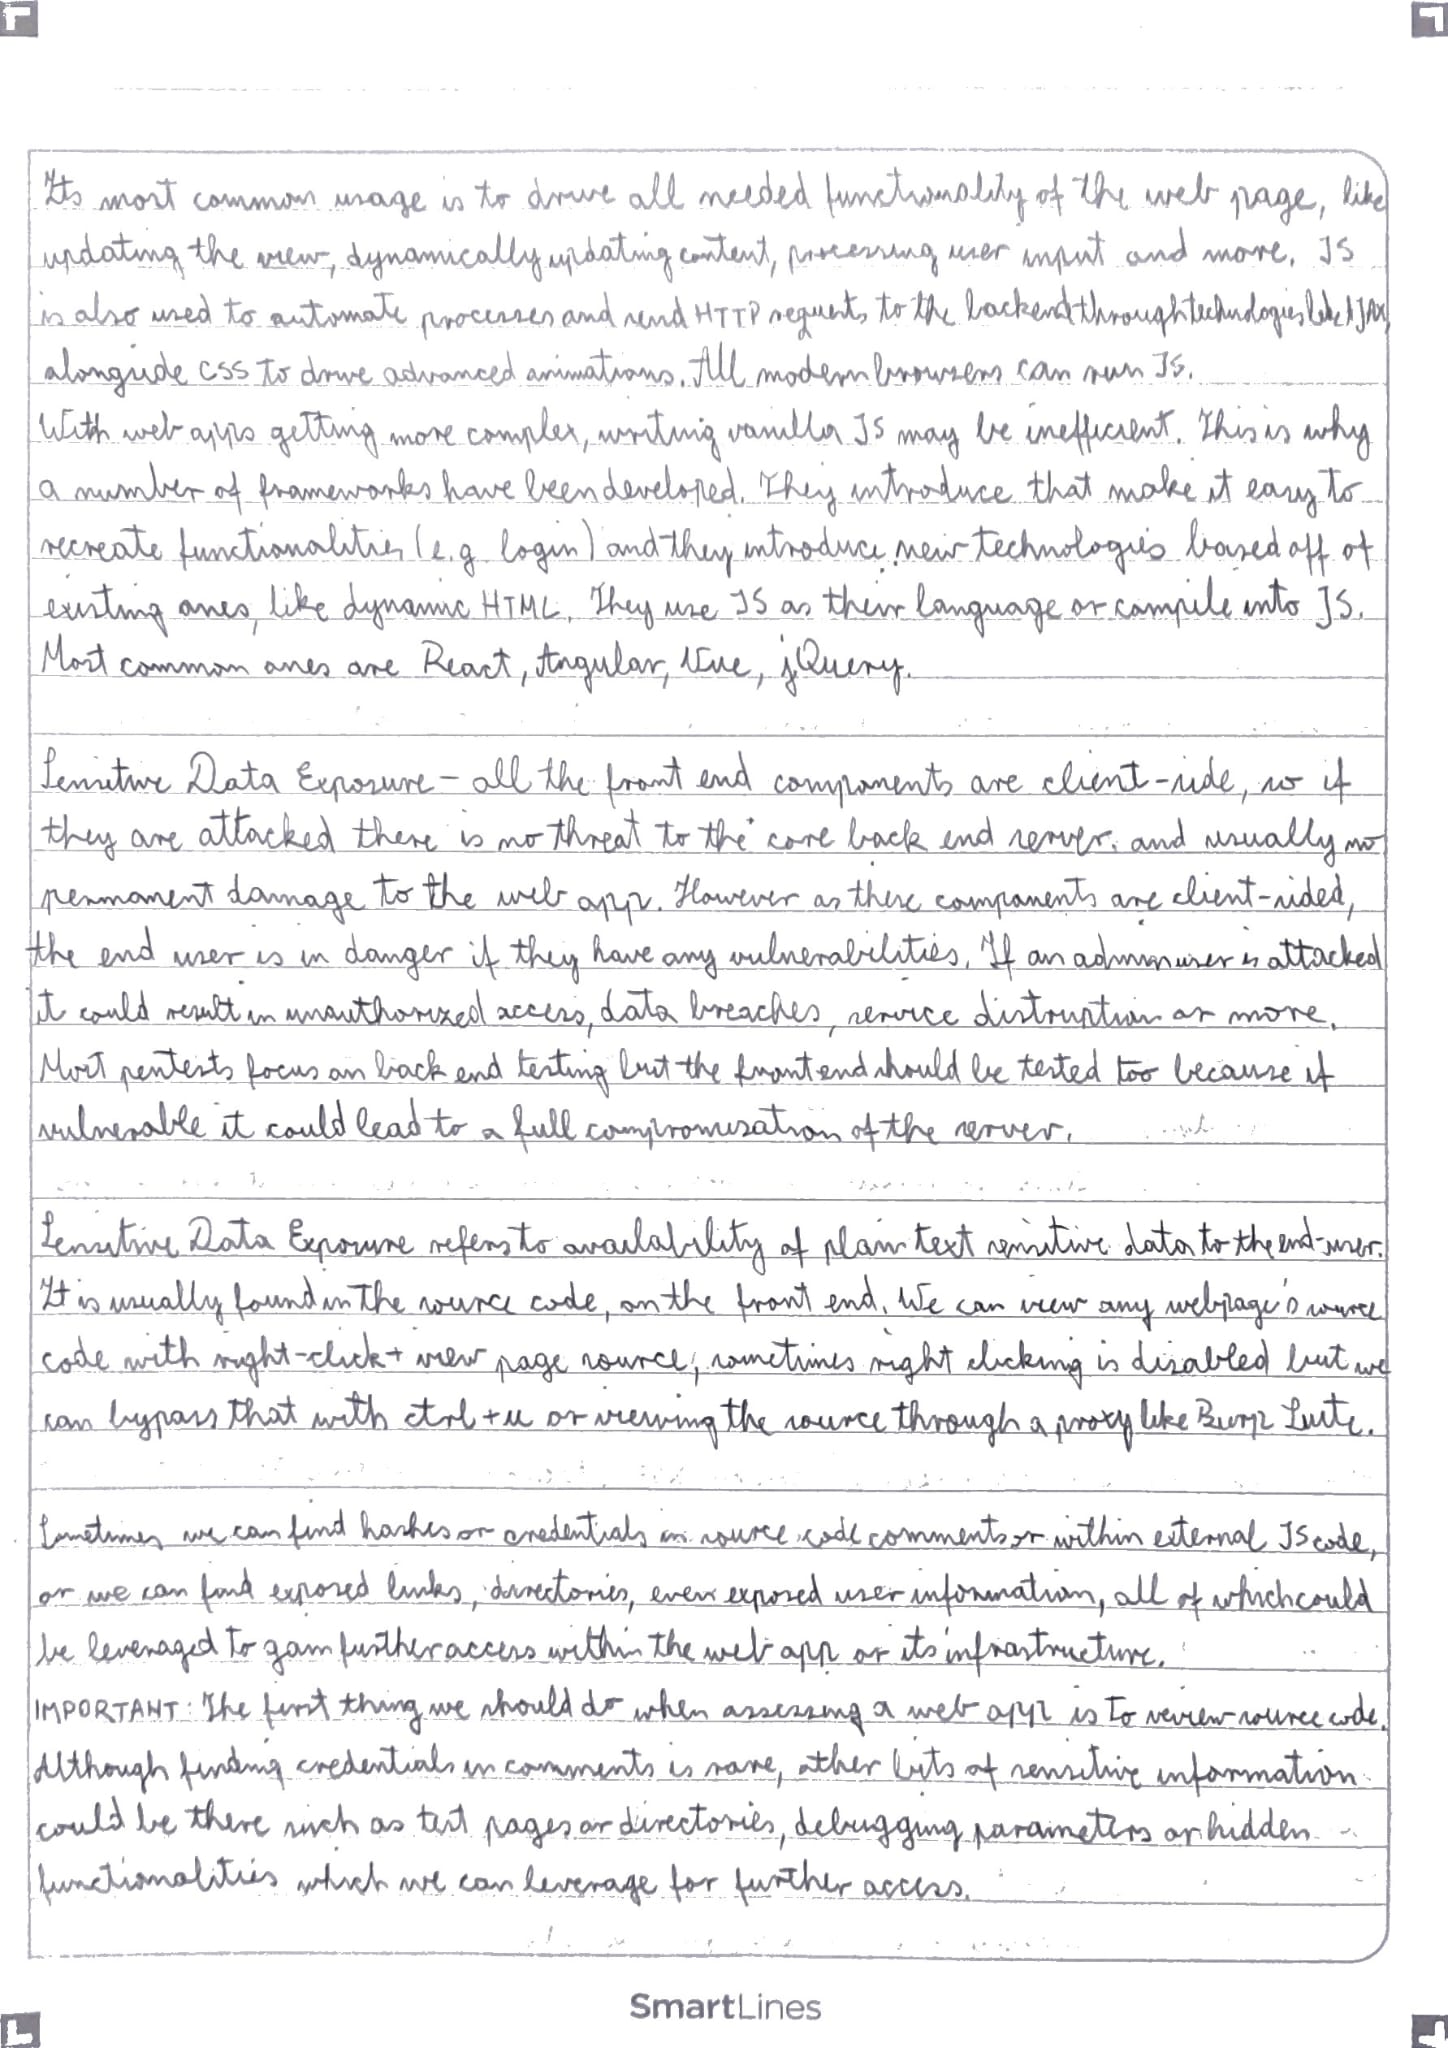 Its most common usage is to drive all needed functionality of the web page, like
updating the view, dynamically updating content, processing user input and more. JS
is also used to automate processes and send HTTP requests to the backend through technologies like AJAX,
alongside CSS to drive advanced animations. All modern browsers can run JS.
With web apps getting more complex, writing vanilla JS may be inefficient. This is why
a number of frameworks have been developed. They introduce that make it easy to
recreate functionalities (e.g. login) and they introduce new technologies based off of
existing ones, like dynamic HTML. They use JS as their language or compile into JS.
Most common ones are React, Angular, Vue, jQuery.
Sensitive Data Exposure - all the front end components are client-side, so if
they are attacked there is no threat to the core back end server. and usually no
permanent damage to the web app. However as these components are client-sided,
the end user is in danger if they have any vulnerabilities. If an admin user is attacked
it could result in unauthorized access, data breaches, service distruption or more.
Most pentests focus on back end testing but the front end should be tested too because if
vulnerable it could lead to a full compromisation of the server.
Sensitive Data Exposure refers to availability of plain text sensitive data to the end-user.
It is usually found in the source code, on the front end. We can view any webpage's source
code with right-click + view page source, sometimes right clicking is disabled but we
can bypass that with ctrl + u or viewing the source through a proxy like Burp Suite.
Sometimes we can find hashes or credentials in source code comments or within external JS code,
or we can find exposed links, directories, even exposed user information, all of which could
be leveraged to gain further access within the web app or its infrastructure.
IMPORTANT: The first thing we should do when assessing a web app is to review source code.
Although finding credentials in comments is rare, other bits of sensitive information
could be there such as test pages or directories, debugging parameters or hidden
functionalities which we can leverage for further access.
SmartLines